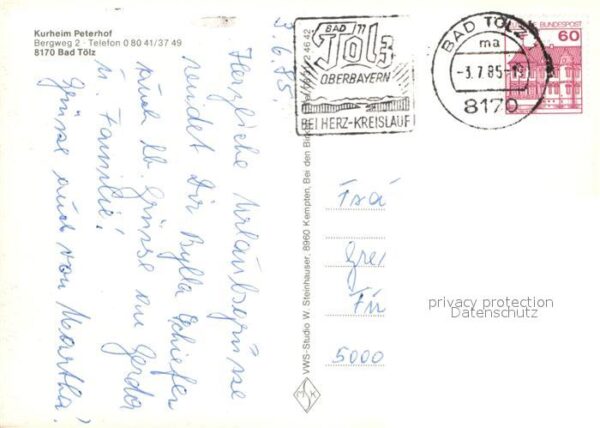 Kurheim Peterhof
Bergweg 2 · Telefon 0 80 41/37 49
8170 Bad Tölz
3.6.85.
Herzliche Urlaubsgrüsse
sendet Dir Schiefer
auch lb. Grüsse an Gerda
u. Familie!
Grüsse auch von Martha!
BAD
Tölz
OBERBAYERN
BEI HERZ-KREISLAUF
BAD TÖLZ
ma
-3.7.85-19
8170
BUNDESPOST
60
VWS-Studio W. Steinhauser, 8960 Kempten, Bei den
4642
M K
Frä
Grei
Für
5000
privacy protection
Datenschutz